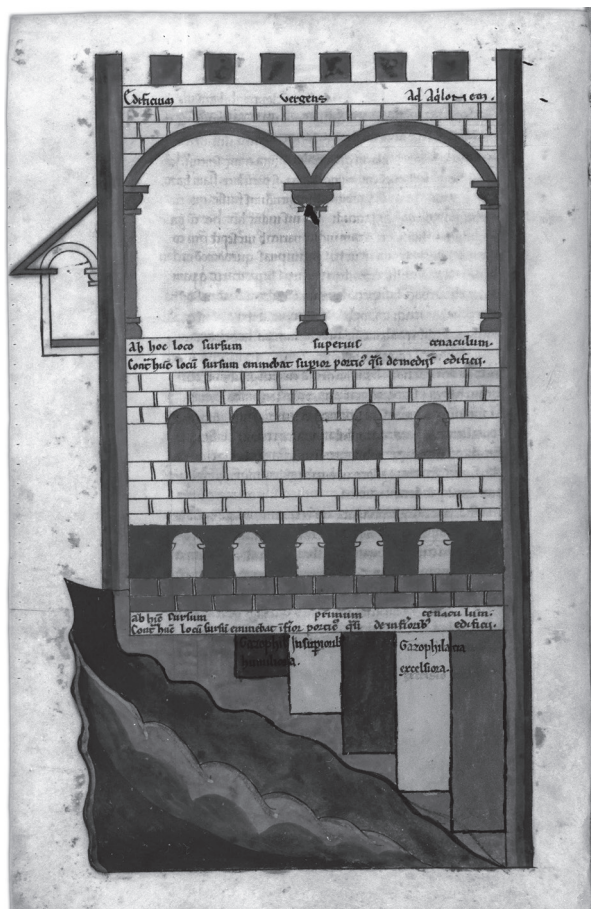 Edificium vergens Ad Aq̃lonem.
Ab hoc loco sursum superius cenaculum.
Cont̃ hũc locũ sursum eminebat supior portic⁹ q̃si de medijs edificij.
ab hĩc sursum primum cenaculum.
Cont̃ hũc locũ sursũ eminebat ĩfior portic⁹ q̃si de infiorib⁹ edificij.
Gazophil
humiliora.
Gazophilatia
excelsiora.